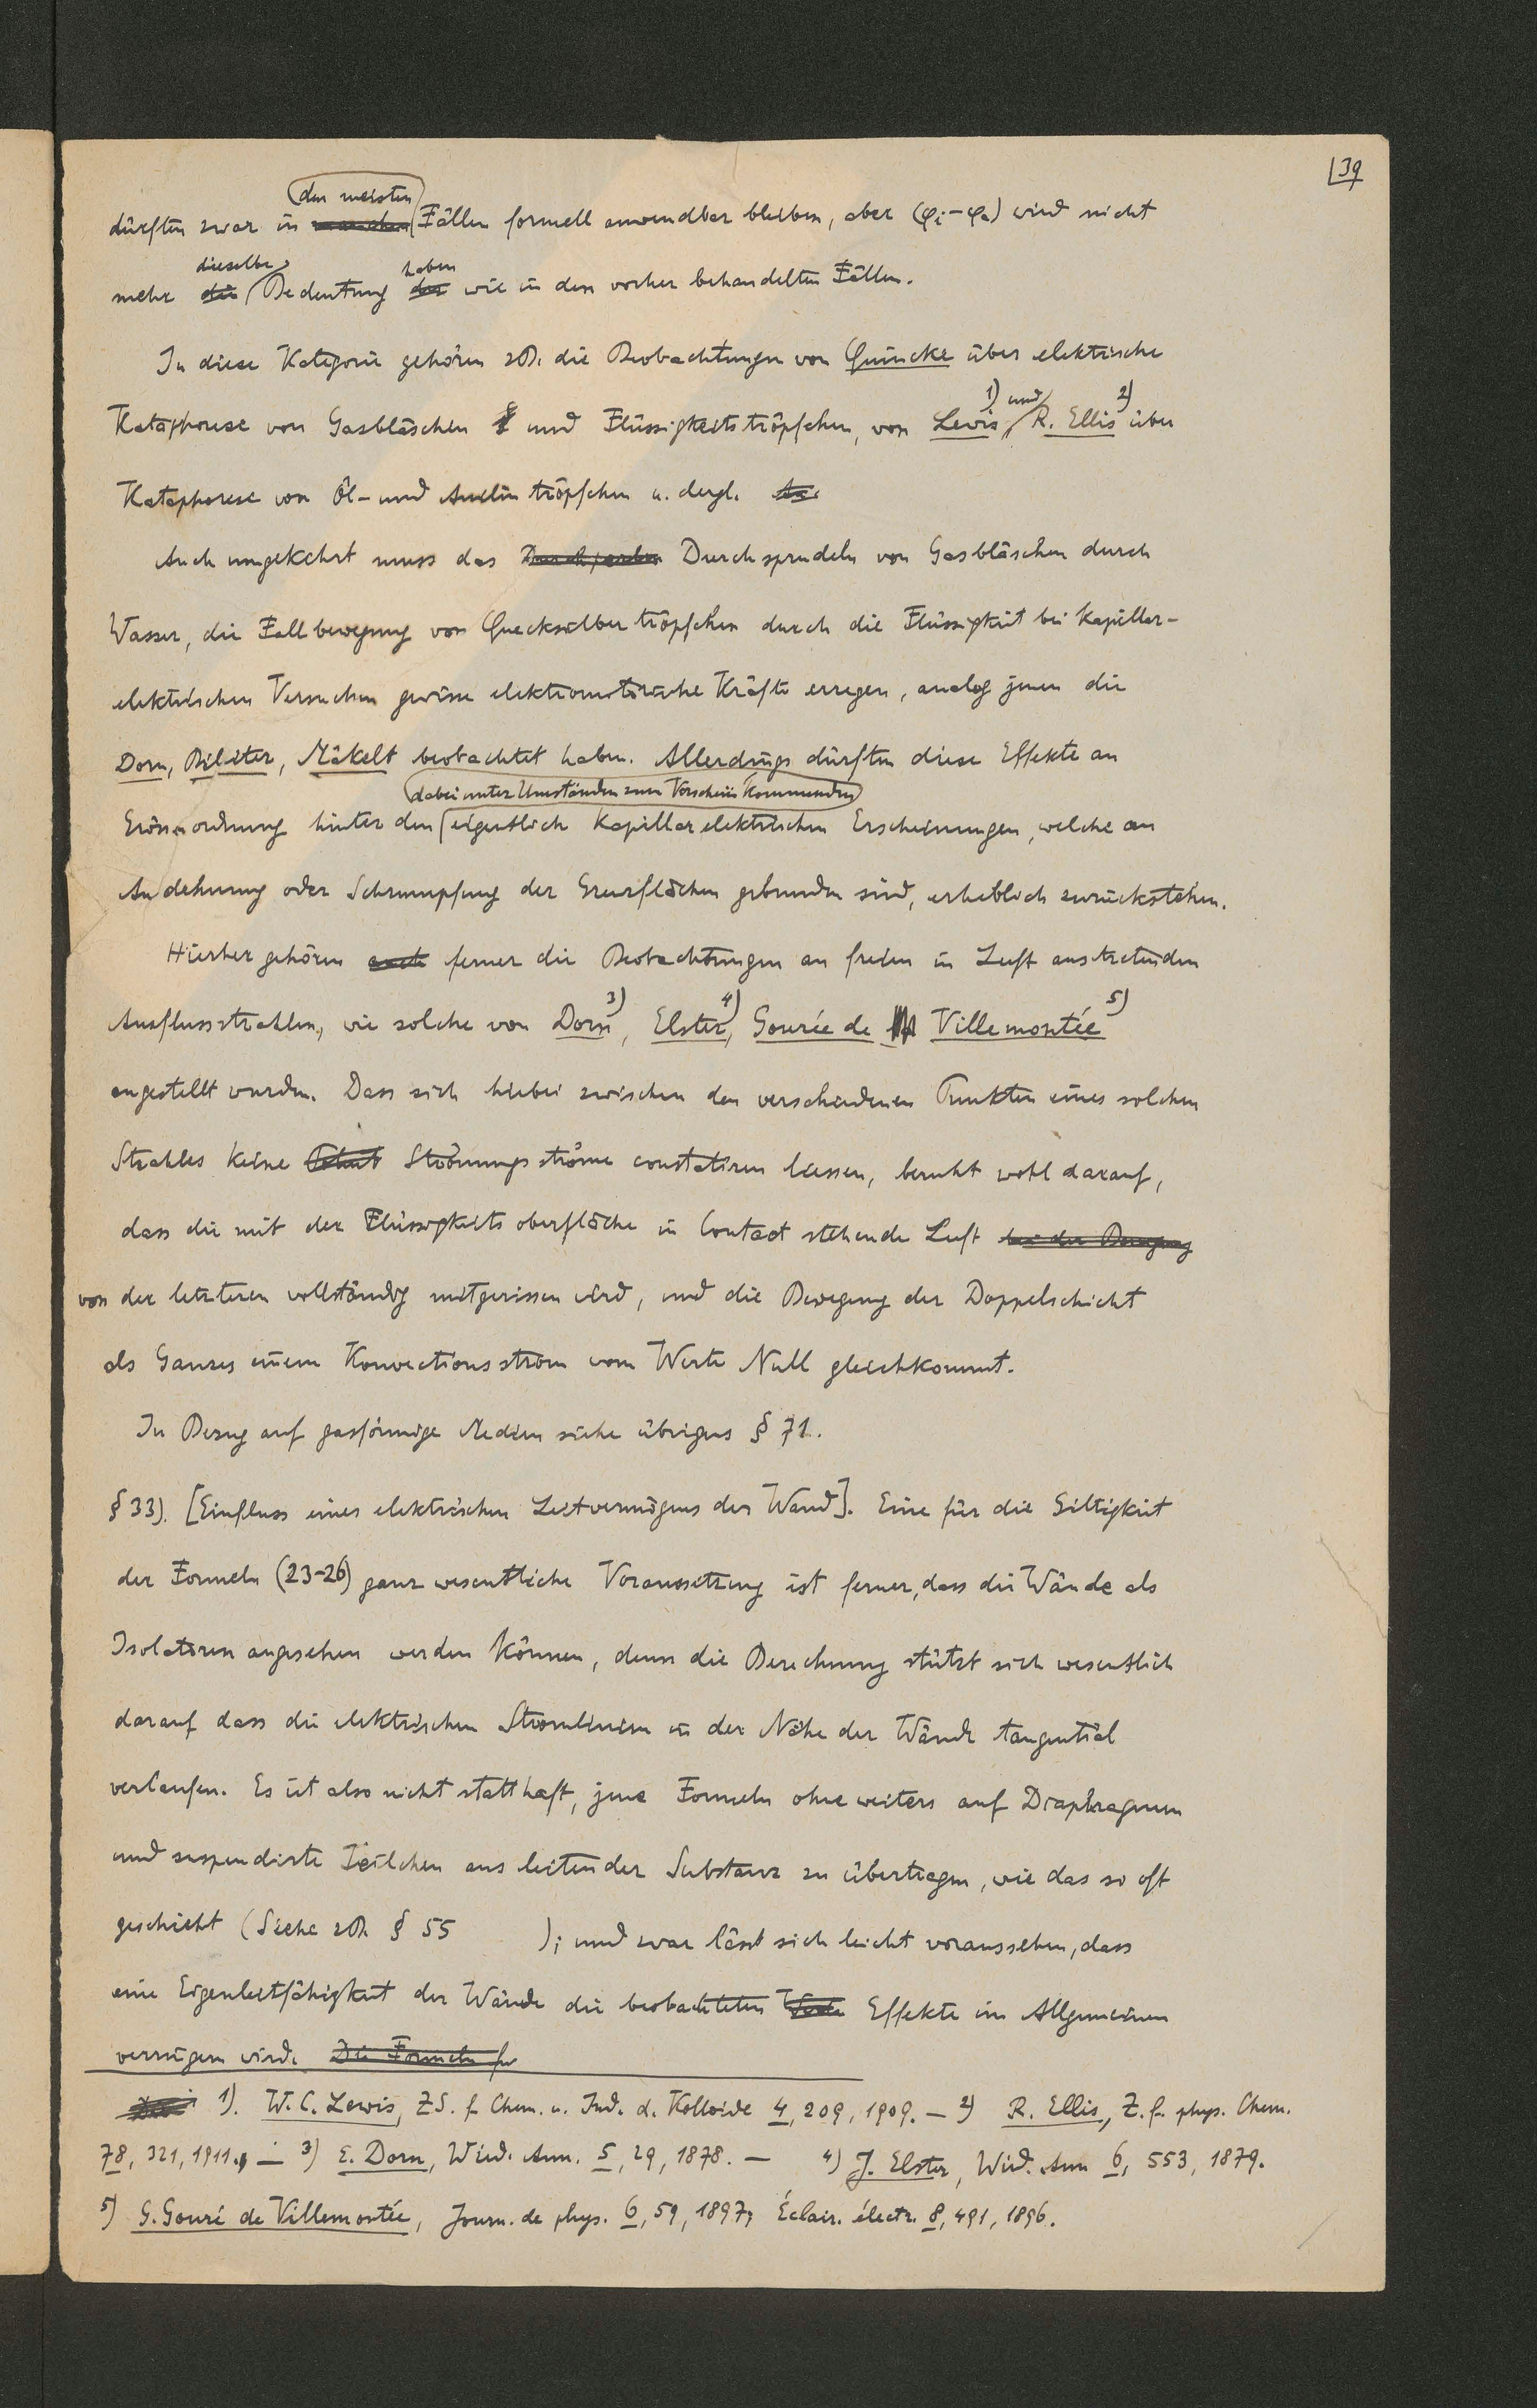 39
den meisten
dürften zwar in manchen Fällen formell anwendbar bleiben, aber (φi-φa) wird nicht
dieselbe haben
mehr die Bedeutung der wie in den vorher behandelten Fällen.
In diese Kategorie gehören zB. die Beobachtungen von Quincke über elektrische
1) und 2)
Kataphorese von Gasbläschen und Flüssigkeitströpfchen, von Lewis, R. Ellis über
Kataphorese von Öl- und Anelin tröpfchen u. dergl.
Auch umgekehrt muss das Durchsprudeln von Gasbläschen durch
Wasser, die Fallbewegung von Quecksilbertröpfchen durch die Flüssigkeit bei Kapillar-
elektrischen Versuchen gewisse elektromotorische Kräfte erregen, analog jenen die
Dorn, Biliter, Mäkelt beobachtet haben. Allerdings dürften diese Effekte an
dabei unter Umständen zum Vorschein Kommenden
Grössenordnung hinter den eigentlich Kapillarelektrischen Erscheinungen, welche an
Ausdehnung oder Schrumpfung der Grenzflächen gebunden sind, erheblich zurückstehen.
Hierher gehören auch ferner die Beobachtungen an freien in Luft austretenden
Ausflussstrahlen, wie solche von Dorn 3), Elster 4), Gourée de Villemontée 5)
angestellt wurden. Dass sich hiebei zwischen den verschiedenen Punkten eines solchen
Strahles keine Strömungsströme constatiren liessen, beruht wohl darauf,
dass die mit der Flüssigkeitsoberfläche in Contact stehende Luft bei der Bewegung
von der letzteren vollständig mitgerissen wird, und die Bewegung der Doppelschicht
als Ganzes einem Konvectionsstrom vom Werte Null gleichkommt.
In Bezug auf gasförmige Medien siehe übrigens § 71.
§ 33). [Einfluss eines elektrischen Leitvermögens der Wand]. Eine für die Giltigkeit
der Formeln (23-26) ganz wesentliche Voraussetzung ist ferner, dass die Wände als
Isolatoren angesehen werden können, denn die Berechnung stützt sich wesentlich
darauf dass die elektrischen Stromlinien in der Nähe der Wände tangential
verlaufen. Es ist also nicht statthaft, jene Formeln ohne weiters auf Diaphragmen
und suspendirte Teilchen aus leitender Substanz zu übertragen, wie das so oft
geschieht (Siehe zB. § 55 ); und zwar lässt sich leicht voraussehen, dass
eine Eigenleitfähigkeit der Wände die beobachteten Werte Effekte im Allgemeinen
verringern wird. Die Formeln für
1). W. C. Lewis, ZS. f. Chem. u. Ind. d. Kolloide 4, 209, 1909. — 2) R. Ellis, Z. f. phys. Chem.
78, 321, 1911. — 3) E. Dorn, Wied. Ann. 5, 29, 1878. — 4) J. Elster, Wied. Ann 6, 553, 1879.
5) G. Gouré de Villemontée, Journ. de phys. 6, 59, 1897; Éclair. électr. 8, 491, 1896.